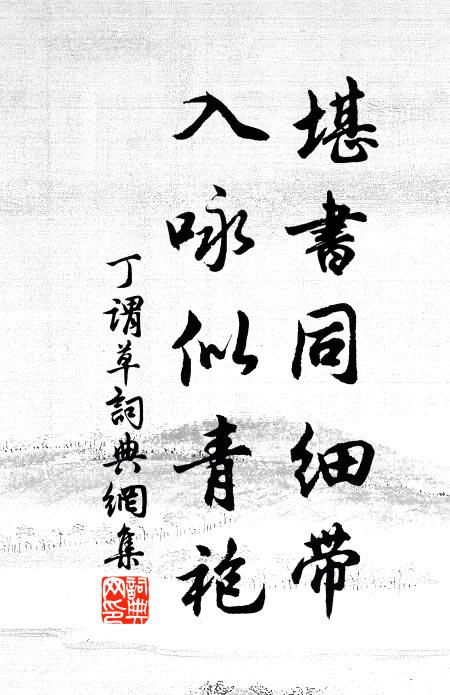 堪書同細帶
入咏似青袍
丁謂草詞典網集
詞典网印